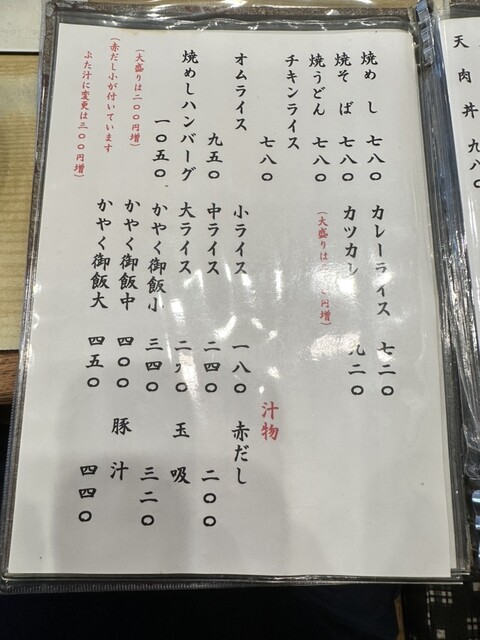 焼めし 七八〇
焼そば 七八〇
焼うどん 七八〇
チキンライス 七八〇
オムライス 九五〇
焼めしハンバーグ 一〇五〇
(大盛りは二〇〇円増)
(赤だし小が付いています
ぶた汁に変更は三〇〇円増)
カレーライス 七二〇
カツカレ 九二〇
(大盛りは 円増)
小ライス 一八〇
中ライス 二四〇
大ライス
かやく御飯小 三四〇
かやく御飯中 四〇〇
かやく御飯大 四五〇
汁物
赤だし 二〇〇
玉吸 三二〇
豚汁 四四〇
天肉丼 九八〇